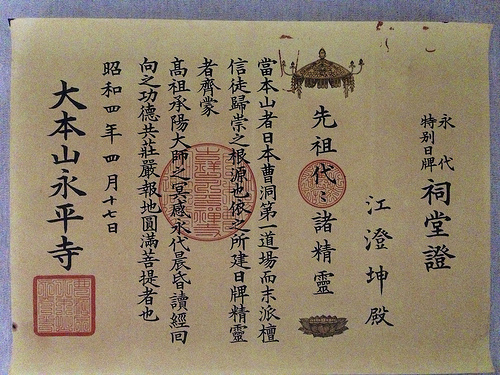 永代
特別日牌
祠堂證
江澄坤殿
先祖代々諸精靈
當本山者日本曹洞第一道場而末派檀
信徒歸崇之根源也依之所建日牌精靈
者齊蒙
高祖承陽大師之冥慈永代晨昏讀經回
向之功德共莊嚴報地圓滿菩提者也
昭和四年四月十七日
大本山永平寺